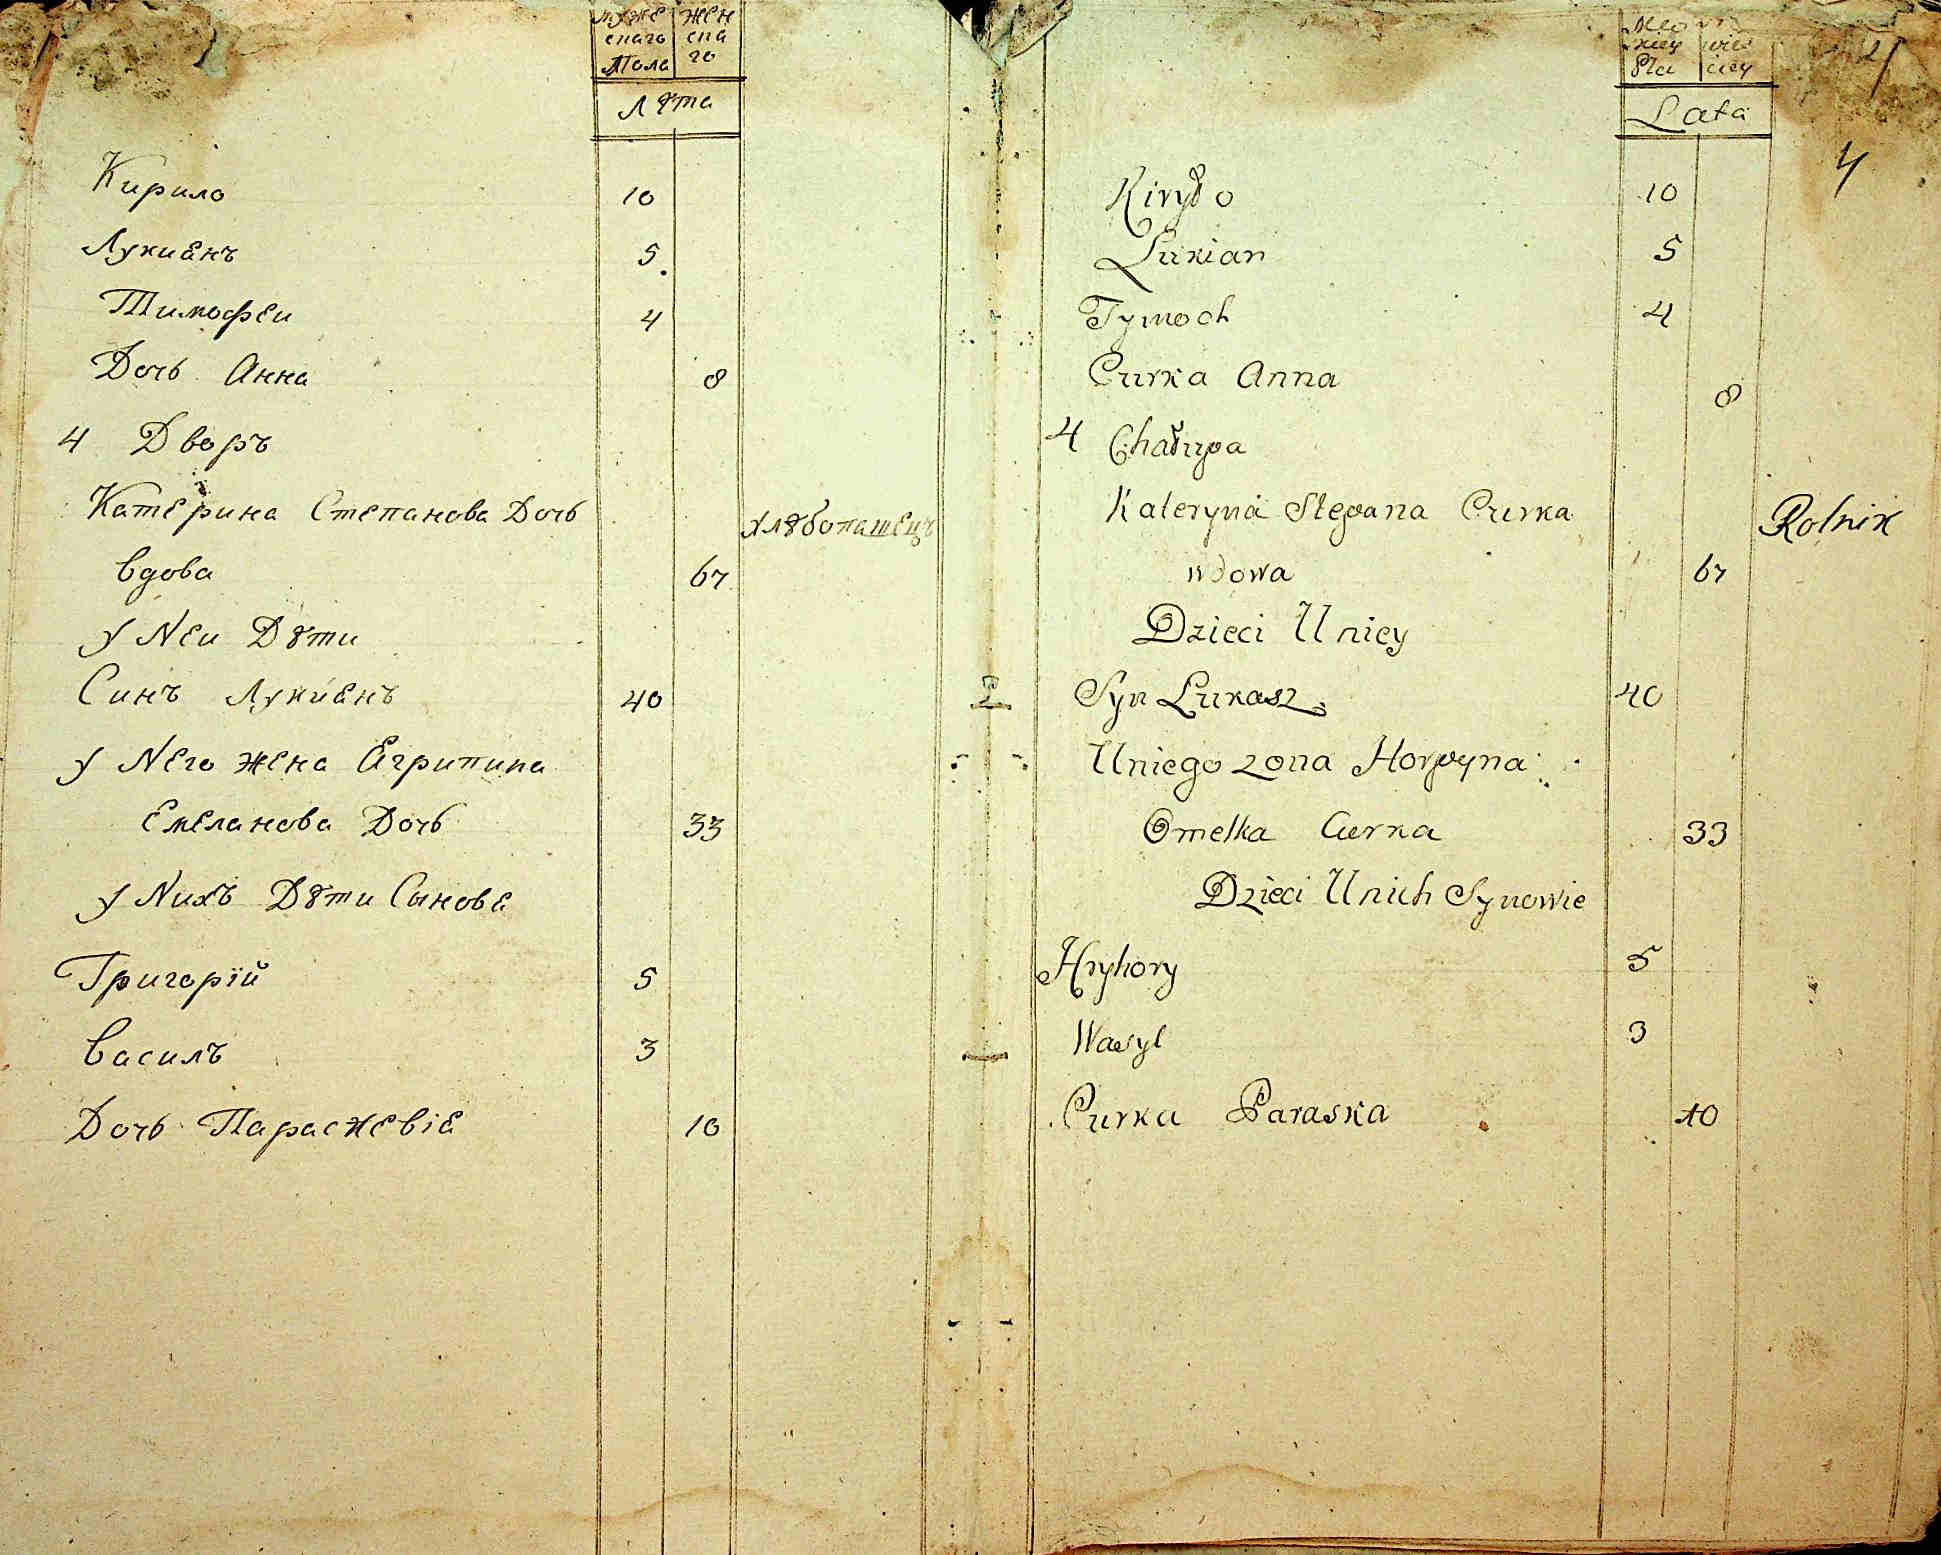 муже жен
скаго ска
Пола го
Лѣта
Кирило 10
Лукианъ 5
Тимофеи 4
Дочь Анна 8
4 Дворъ
Катерина Степанова Дочь хлѣбопашецъ
вдова 67
у Неи Дѣти
Синъ Лукианъ 40
у Него жена Агрипина
Емеланова Дочь 33
у Нихъ Дѣти Сынове
Григорій 5
Василъ 3
Дочь Параскевіа 10
Lata
4
Kiryło 10
Lukian 5
Tymoch 4
Curka Anna 8
4 Chałupa
Kateryna Stepana Curka Rolnik
wdowa 67
Dzieci Uniey
Syn Lukasz 40
Uniego zona Horpyna
Omelka Curka 33
Dzieci Unich Synowie
Hryhory 5
Wasyl 3
Curka Paraska 10